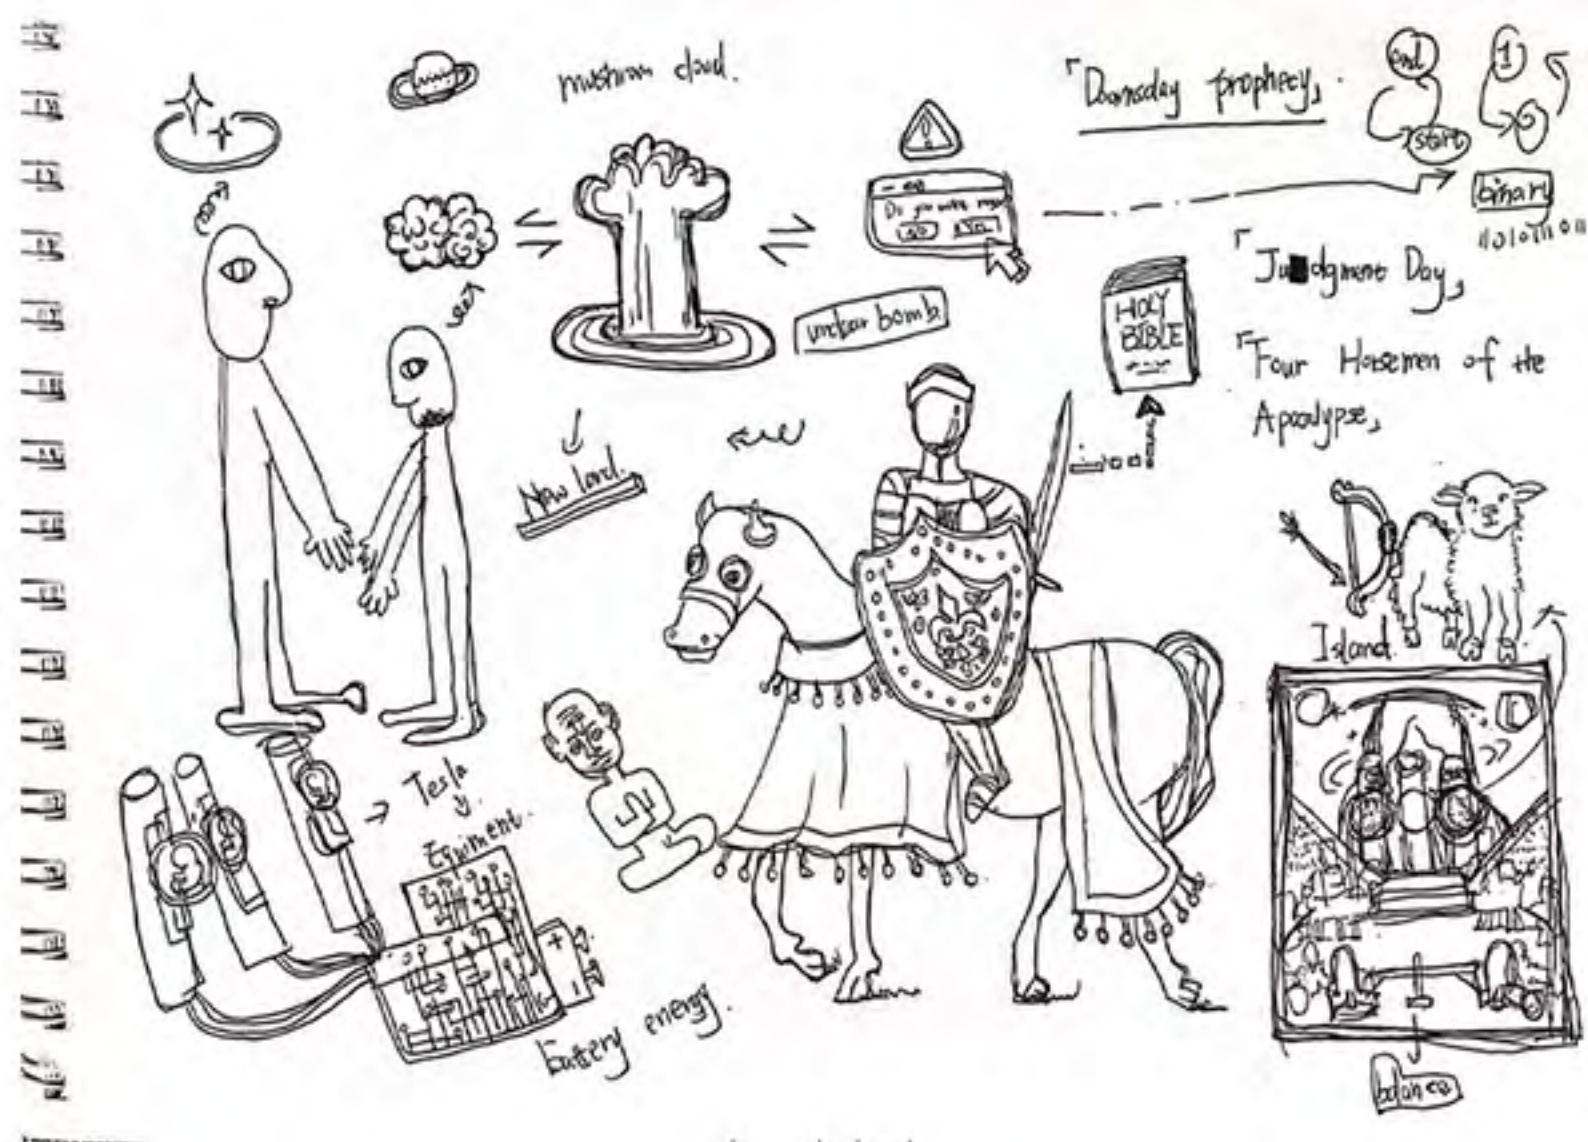 mushroom cloud.
「Doomsday prophecy」
end
start
1
0
binary
Do you want
NO
HOLY
BIBLE
「Judgment Day」
「Four Horsemen of the
Apocalypse」
unclear bomb.
New land.
Island.
Tesla
Equiment.
+
battery energy.
balance